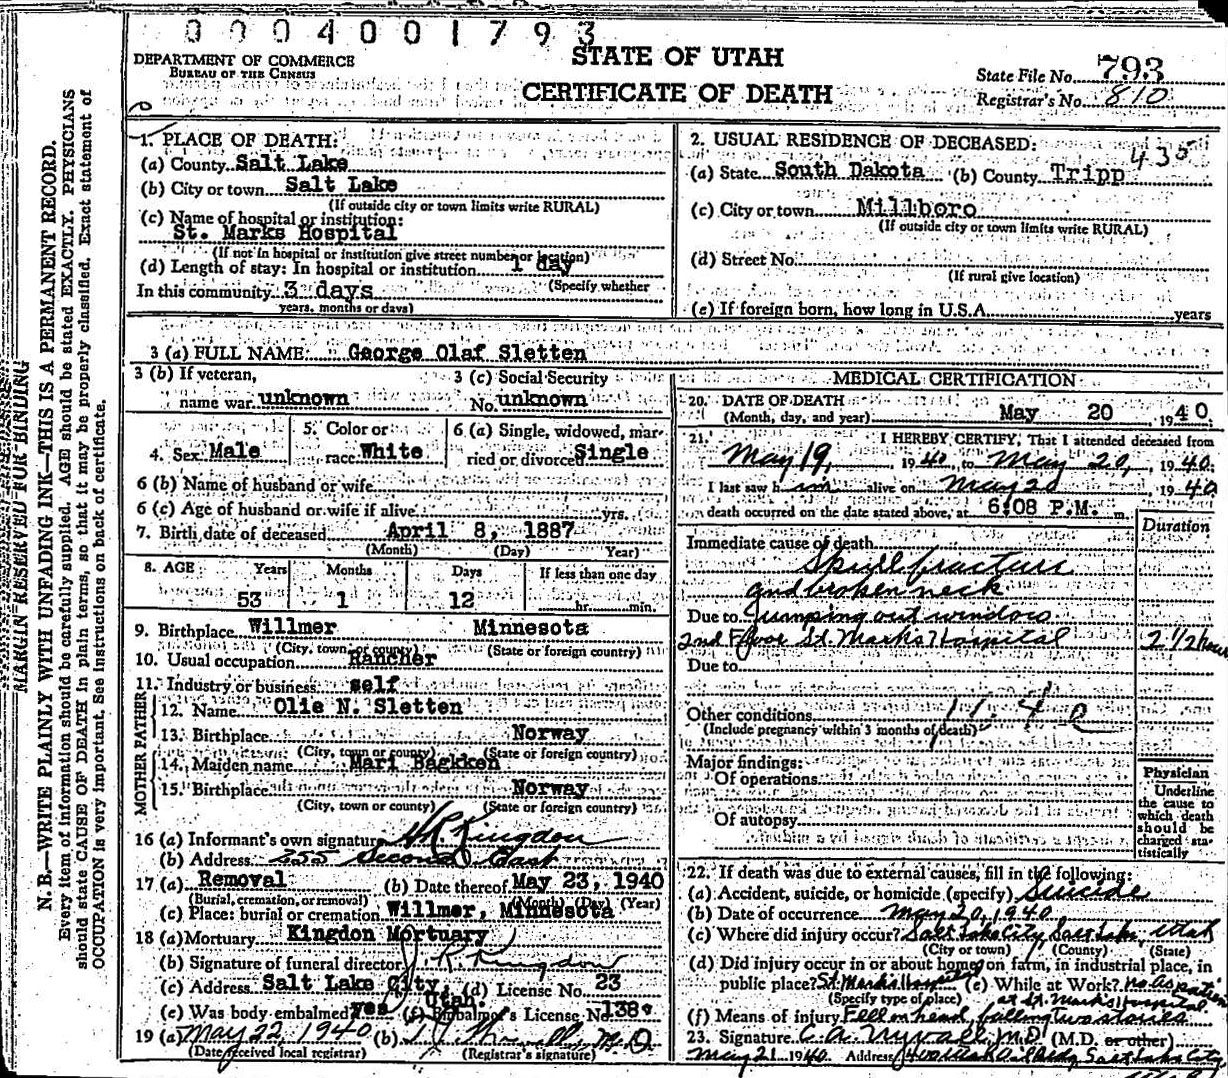 0004001793
DEPARTMENT OF COMMERCE
BUREAU OF THE CENSUS
STATE OF UTAH
CERTIFICATE OF DEATH
State File No. 793
Registrar's No. 810
MARGIN RESERVED FOR BINDING
N. B.—WRITE PLAINLY WITH UNFADING INK—THIS IS A PERMANENT RECORD.
Every item of information should be carefully supplied. AGE should be stated EXACTLY. PHYSICIANS
should state CAUSE OF DEATH in plain terms, so that it may be properly classified. Exact statement of
OCCUPATION is very important. See instructions on back of certificate.
1. PLACE OF DEATH:
(a) County Salt Lake
(b) City or town Salt Lake
(If outside city or town limits write RURAL)
(c) Name of hospital or institution:
St. Marks Hospital
(If not in hospital or institution give street number or location)
(d) Length of stay: In hospital or institution 1 day
(Specify whether
In this community 3 days
years, months or days)
2. USUAL RESIDENCE OF DECEASED:
435
(a) State South Dakota (b) County Tripp
(c) City or town Millboro
(If outside city or town limits write RURAL)
(d) Street No.
(If rural give location)
(e) If foreign born, how long in U.S.A. years
3 (a) FULL NAME George Olaf Sletten
3 (b) If veteran,
name war unknown
3 (c) Social Security
No. unknown
4. Sex Male
5. Color or
race White
6 (a) Single, widowed, mar-
ried or divorced Single
6 (b) Name of husband or wife
6 (c) Age of husband or wife if alive yrs.
7. Birth date of deceased April 8, 1887
(Month) (Day) Year)
8. AGE Years Months Days If less than one day
53 1 12 hr. min.
9. Birthplace Willmer Minnesota
(City, town or county) (State or foreign country)
10. Usual occupation Rancher
11. Industry or business self
FATHER
12. Name Olie N. Sletten
13. Birthplace Norway
(City, town or county) (State or foreign country)
MOTHER
14. Maiden name Mari Bagkken
15. Birthplace Norway
(City, town or county) (State or foreign country)
16 (a) Informant's own signature Kingdon
(b) Address 255 Second East
17 (a) Removal (b) Date thereof May 23, 1940
(Burial, cremation, or removal) (Month) (Day) (Year)
(c) Place: burial or cremation Willmer, Minnesota
18 (a) Mortuary Kingdon Mortuary
(b) Signature of funeral director Kingdon
(c) Address Salt Lake City, Utah. (d) License No. 23
(e) Was body embalmed? yes (f) Embalmer's License No. 138
19 (a) May 22, 1940 (b) M.D.
(Date received local registrar) (Registrar's signature)
MEDICAL CERTIFICATION
20. DATE OF DEATH
(Month, day, and year) May 20 1940.
21. I HEREBY CERTIFY, That I attended deceased from
May 19, 1940, to May 20, 1940.
I last saw him alive on May 20 1940
death occurred on the date stated above, at 6:08 P.M. m.
Duration
Immediate cause of death
Skull fracture
and broken neck
Due to Jumping out window
2nd Floor St. Marks Hospital 2 1/2 hour
Due to
Other conditions
(Include pregnancy within 3 months of death)
Major findings:
Of operations
Of autopsy
Physician
Underline
the cause to
which death
should be
charged sta-
tistically
22. If death was due to external causes, fill in the following:
(a) Accident, suicide, or homicide (specify) Suicide
(b) Date of occurrence May 20, 1940
(c) Where did injury occur? Salt Lake City, Salt Lake, Utah
(City or town) (County) (State)
(d) Did injury occur in or about home, on farm, in industrial place, in
public place? St. Marks Hospital (e) While at Work? no as patient
(Specify type of place) at St. Marks Hospital
(f) Means of injury Fell on head, falling two stories
23. Signature C. A. M.D. (M.D. or other)
May 21 1940 Address Salt Lake City